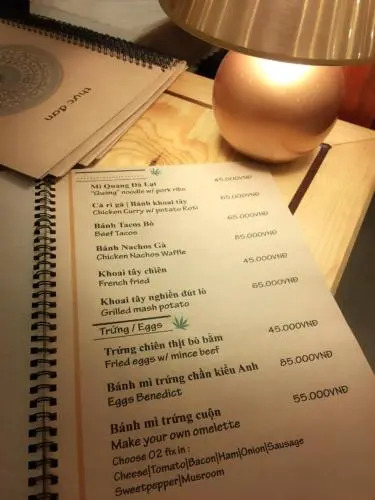 thực đơn
Mì Quảng Dà Lại 45.000VNĐ
"Quang" noodle w/ pork ribs
Cà ri gà | Bánh khoai tây 65.000VNĐ
Chicken Curry w/ potato Roti
Bánh Tacos Bò 65.000VNĐ
Beef Tacos
Bánh Nachos Gà 85.000VNĐ
Chicken Nachos Waffle
Khoai tây chiên 45.000VNĐ
French fried
Khoai tây nghiền đút lò 65.000VNĐ
Grilled mash potato
Trứng / Eggs
Trứng chiên thịt bò bằm 45.000VNĐ
Fried eggs w/ mince beef
Bánh mì trứng chần kiểu Anh 85.000VNĐ
Eggs Benedict
Bánh mì trứng cuộn 55.000VNĐ
Make your own omelette
Choose 02 fix in :
Cheese|Tomato|Bacon|Ham|Onion|Sausage
Sweetpepper|Musroom